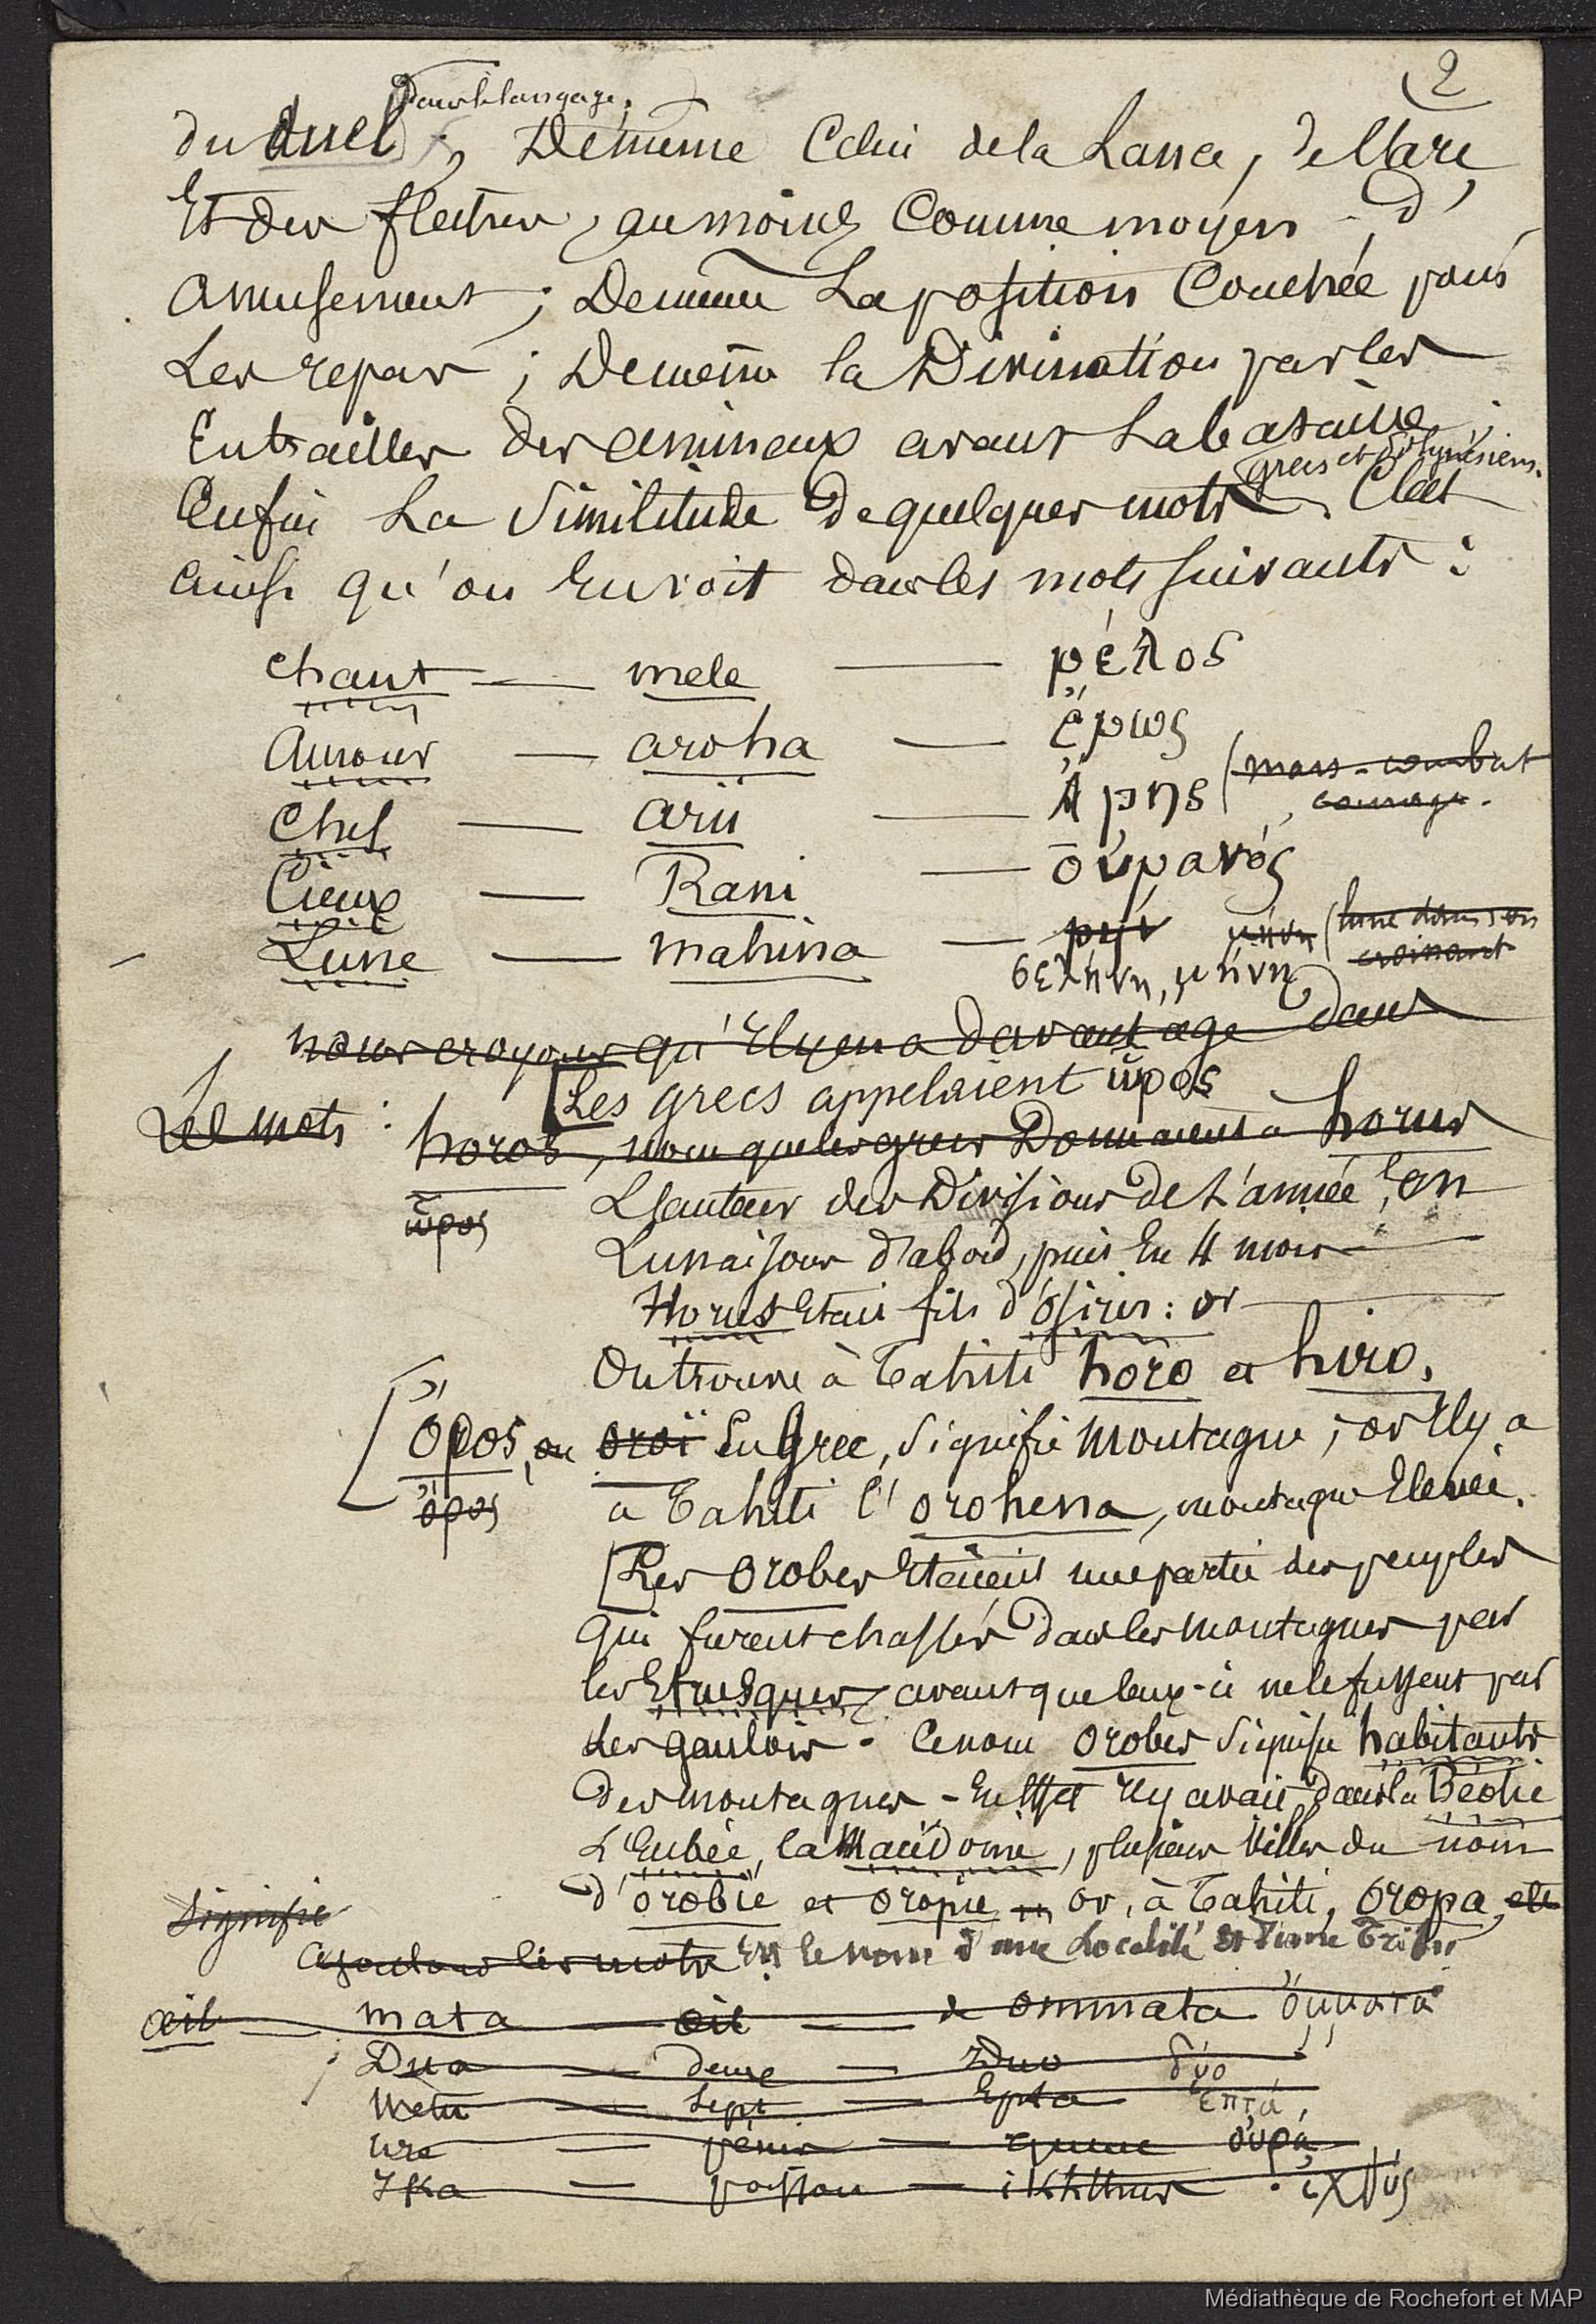 2
dans le langage.
du duel, Demême Celui de la Lance, de l'arc
Et des fleches, au moins Comme moyen d'
amusement; Demême La position Couchée pour
Les repas; Demême la Divination par les
Entrailles des animaux avant La bataille;
grecs et Polynésiens.
Enfin La Similitude de quelques mots. C'est
ainsi qu'on En voit dans les mots suivants:
chant — mele — μέλος
Amour — aroha — ἔρως
Chef — arii — Ἄρης (mars - combat
courage.
Cieux — Rani — οὐρανός
Lune — mahina — μήν μήνη (lune dans son
croissant
σελήνη, μήνη
nous croyons qu'Il y en a davantage dans
Les grecs appelaient ὧρος
Les mots: horos, nom que les grecs Donnaient à horus
ὧρος
L'auteur des Divisions de L'année, en
Lunaisons d'abord, puis En 4 mois
Horus Etait fils d'Osiris: or
On trouve à Tahiti horo et hiro.
Ὄρος, ou oroï En Grec, signifie montagne; or Il y a
ὄρος
à Tahiti l'orohena, montagne Elevée.
Les Orobes Etaient une partie des peuples
qui furent chassés dans les montagnes par
les Etrusques, avant que ceux-ci ne le fussent par
les gaulois. Ce nom Orobes signifie habitants
des montagnes - En Effet Il y avait dans la Béotie
L'Eubée, la Macédoine, plusieurs Villes du nom
d'orobie et oropie or, à Tahiti, Oropa, etc
signifie
Ajoutons les mots Est le nom d'une Localité et d'une Tribu
œil — mata — œil — de ommata ὄμματα
Dua — deux — Duo δύο
Wetu — sept — Epta ἑπτά,
ure — pénis — queue οὐρά
Ika — poisson — ikhthus. ἰχθύς
Médiathèque de Rochefort et MAP